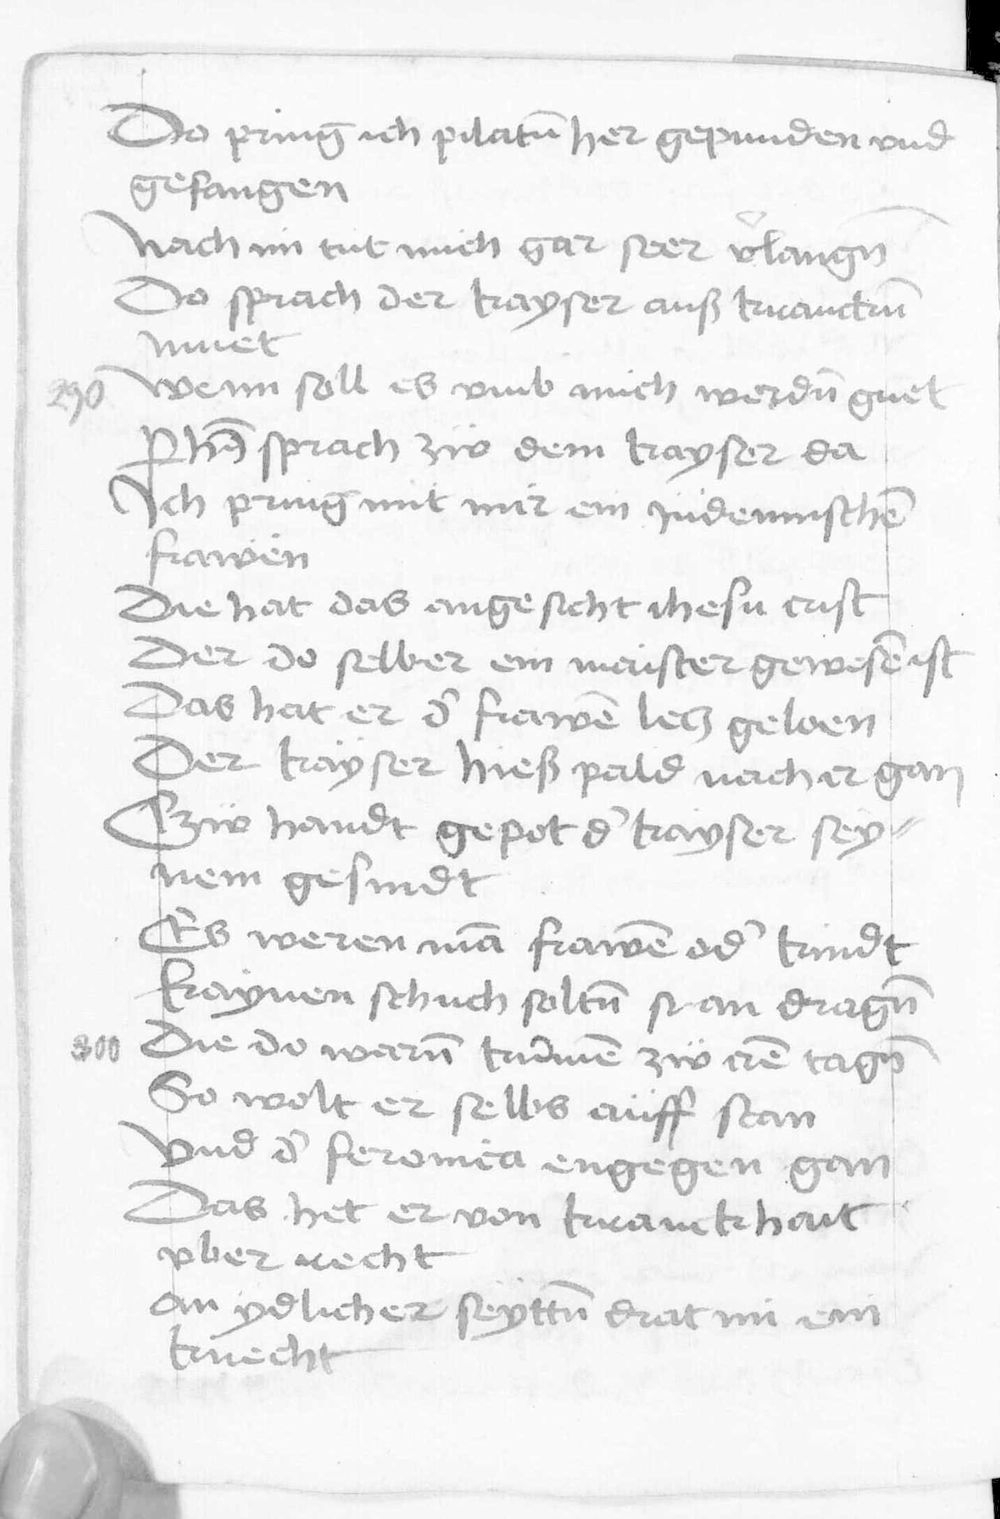 Do pring ich pilatū her gepunden vnd
gefangen
Nach im tut mich gar seer v̉langn̄
Do sprach der kayser auß kranckn̄
muet
290 Wenn soll es vmb mich werdn̄ guet
sprach zw dem kayser da
Ich pring mit mir ein Judennischē
frawen
Die hat das angesicht ihesu crist
Der do selber ein maister gewesē ist
Das hat er d' frawē lech geben
Der kayser hieß pald nach er gan
Czw handt gepot d' kayser sey=
nem gesindt
Es weren mā frawē od' kindt
kaynen schuch soltn̄ si an dragn̄
300 Die do warn̄ kumē zw irē tagn̄
So wolt er selbs auff stan
Vnd d' feronica engegen gan
Das het er von kranckhait
vber recht
An ydlicher seyttn̄ drat im ein
knecht